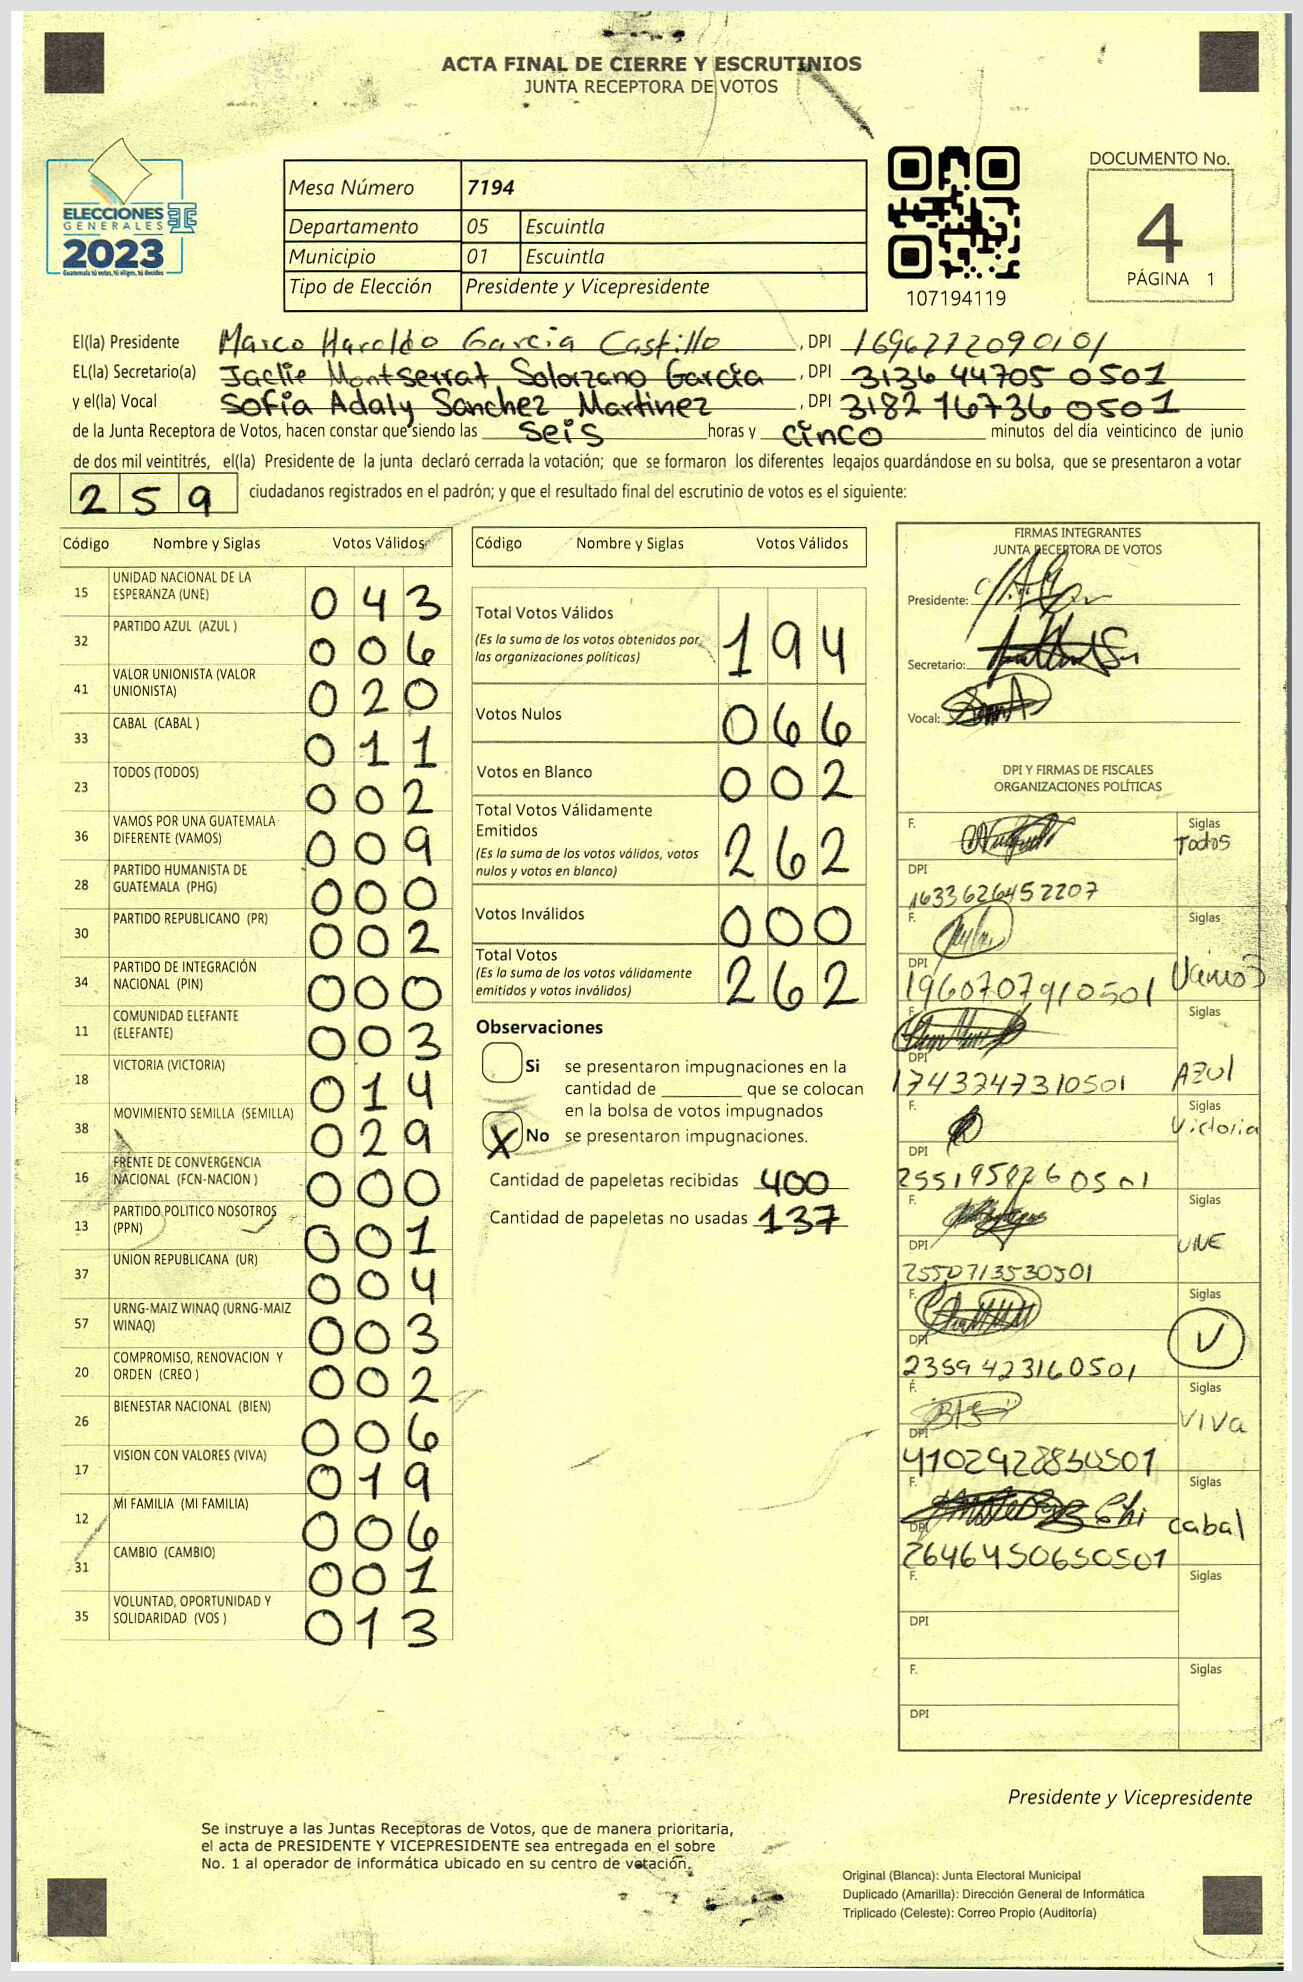 ACTA FINAL DE CIERRE Y ESCRUTINIOS
JUNTA RECEPTORA DE VOTOS
ELECCIONES
GENERALES
2023
Guatemala tú votas, tú eliges, tú decides
Mesa Número 7194
Departamento 05 Escuintla
Municipio 01 Escuintla
Tipo de Elección Presidente y Vicepresidente
107194119
DOCUMENTO No.
4
PÁGINA 1
El(la) Presidente Marco Haroldo Garcia Castillo, DPI 1696772090101
EL(la) Secretario(a) Jaclie Montserrat Solorzano García, DPI 3136 44705 0501
y el(la) Vocal Sofía Adaly Sanchez Martinez, DPI 3182 16736 0501
de la Junta Receptora de Votos, hacen constar que siendo las seis horas y cinco minutos del día veinticinco de junio
de dos mil veintitrés, el(la) Presidente de la junta declaró cerrada la votación; que se formaron los diferentes legajos guardándose en su bolsa, que se presentaron a votar
259 ciudadanos registrados en el padrón; y que el resultado final del escrutinio de votos es el siguiente:
Código Nombre y Siglas Votos Válidos
15 UNIDAD NACIONAL DE LA ESPERANZA (UNE) 043
32 PARTIDO AZUL (AZUL ) 006
41 VALOR UNIONISTA (VALOR UNIONISTA) 020
33 CABAL (CABAL ) 011
23 TODOS (TODOS) 002
36 VAMOS POR UNA GUATEMALA DIFERENTE (VAMOS) 009
28 PARTIDO HUMANISTA DE GUATEMALA (PHG) 000
30 PARTIDO REPUBLICANO (PR) 002
34 PARTIDO DE INTEGRACIÓN NACIONAL (PIN) 000
11 COMUNIDAD ELEFANTE (ELEFANTE) 003
18 VICTORIA (VICTORIA) 014
38 MOVIMIENTO SEMILLA (SEMILLA) 029
16 FRENTE DE CONVERGENCIA NACIONAL (FCN-NACION ) 000
13 PARTIDO POLITICO NOSOTROS (PPN) 001
37 UNION REPUBLICANA (UR) 004
57 URNG-MAIZ WINAQ (URNG-MAIZ WINAQ) 003
20 COMPROMISO, RENOVACION Y ORDEN (CREO ) 002
26 BIENESTAR NACIONAL (BIEN) 006
17 VISION CON VALORES (VIVA) 019
12 MI FAMILIA (MI FAMILIA) 006
31 CAMBIO (CAMBIO) 001
35 VOLUNTAD, OPORTUNIDAD Y SOLIDARIDAD (VOS ) 013
Código Nombre y Siglas Votos Válidos
Total Votos Válidos 194
(Es la suma de los votos obtenidos por las organizaciones políticas)
Votos Nulos 066
Votos en Blanco 002
Total Votos Válidamente Emitidos 262
(Es la suma de los votos válidos, votos nulos y votos en blanco)
Votos Inválidos 000
Total Votos 262
(Es la suma de los votos válidamente emitidos y votos inválidos)
Observaciones
Si se presentaron impugnaciones en la
cantidad de ________ que se colocan
en la bolsa de votos impugnados
X No se presentaron impugnaciones.
Cantidad de papeletas recibidas 400
Cantidad de papeletas no usadas 137
FIRMAS INTEGRANTES
JUNTA RECEPTORA DE VOTOS
Presidente:
Secretario:
Vocal:
DPI Y FIRMAS DE FISCALES
ORGANIZACIONES POLÍTICAS
F. Siglas Todos
DPI 1633626452207
F. Siglas Vamos
DPI 1960707910501
F. Siglas AZUL
DPI 1743747310501
F. Siglas Victoria
DPI 2551958260501
F. Siglas UNE
DPI 2550713530501
F. Siglas V
DPI 2359423160501
F. Siglas VIVa
DPI 4102922850501
F. Siglas cabal
DPI 2646450650501
F. Siglas
DPI
F. Siglas
DPI
Presidente y Vicepresidente
Se instruye a las Juntas Receptoras de Votos, que de manera prioritaria,
el acta de PRESIDENTE Y VICEPRESIDENTE sea entregada en el sobre
No. 1 al operador de informática ubicado en su centro de votación.
Original (Blanca): Junta Electoral Municipal
Duplicado (Amarilla): Dirección General de Informática
Triplicado (Celeste): Correo Propio (Auditoría)